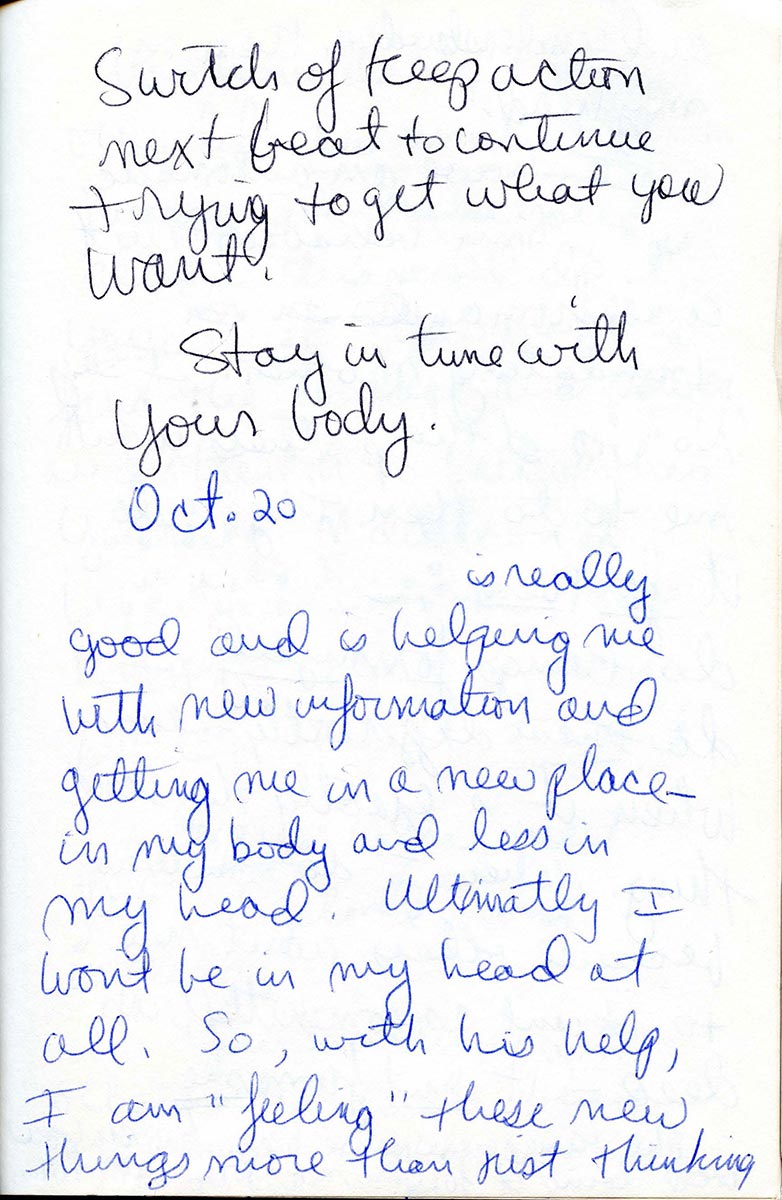 Switch of keep action
next beat to continue
trying to get what you
want.
Stay in tune with
your body.
Oct. 20
is really
good and is helping me
with new information and
getting me in a new place-
in my body and less in
my head. Ultimatly I
wont be in my head at
all. So, with his help,
I am "feeling" these new
things more than just thinking